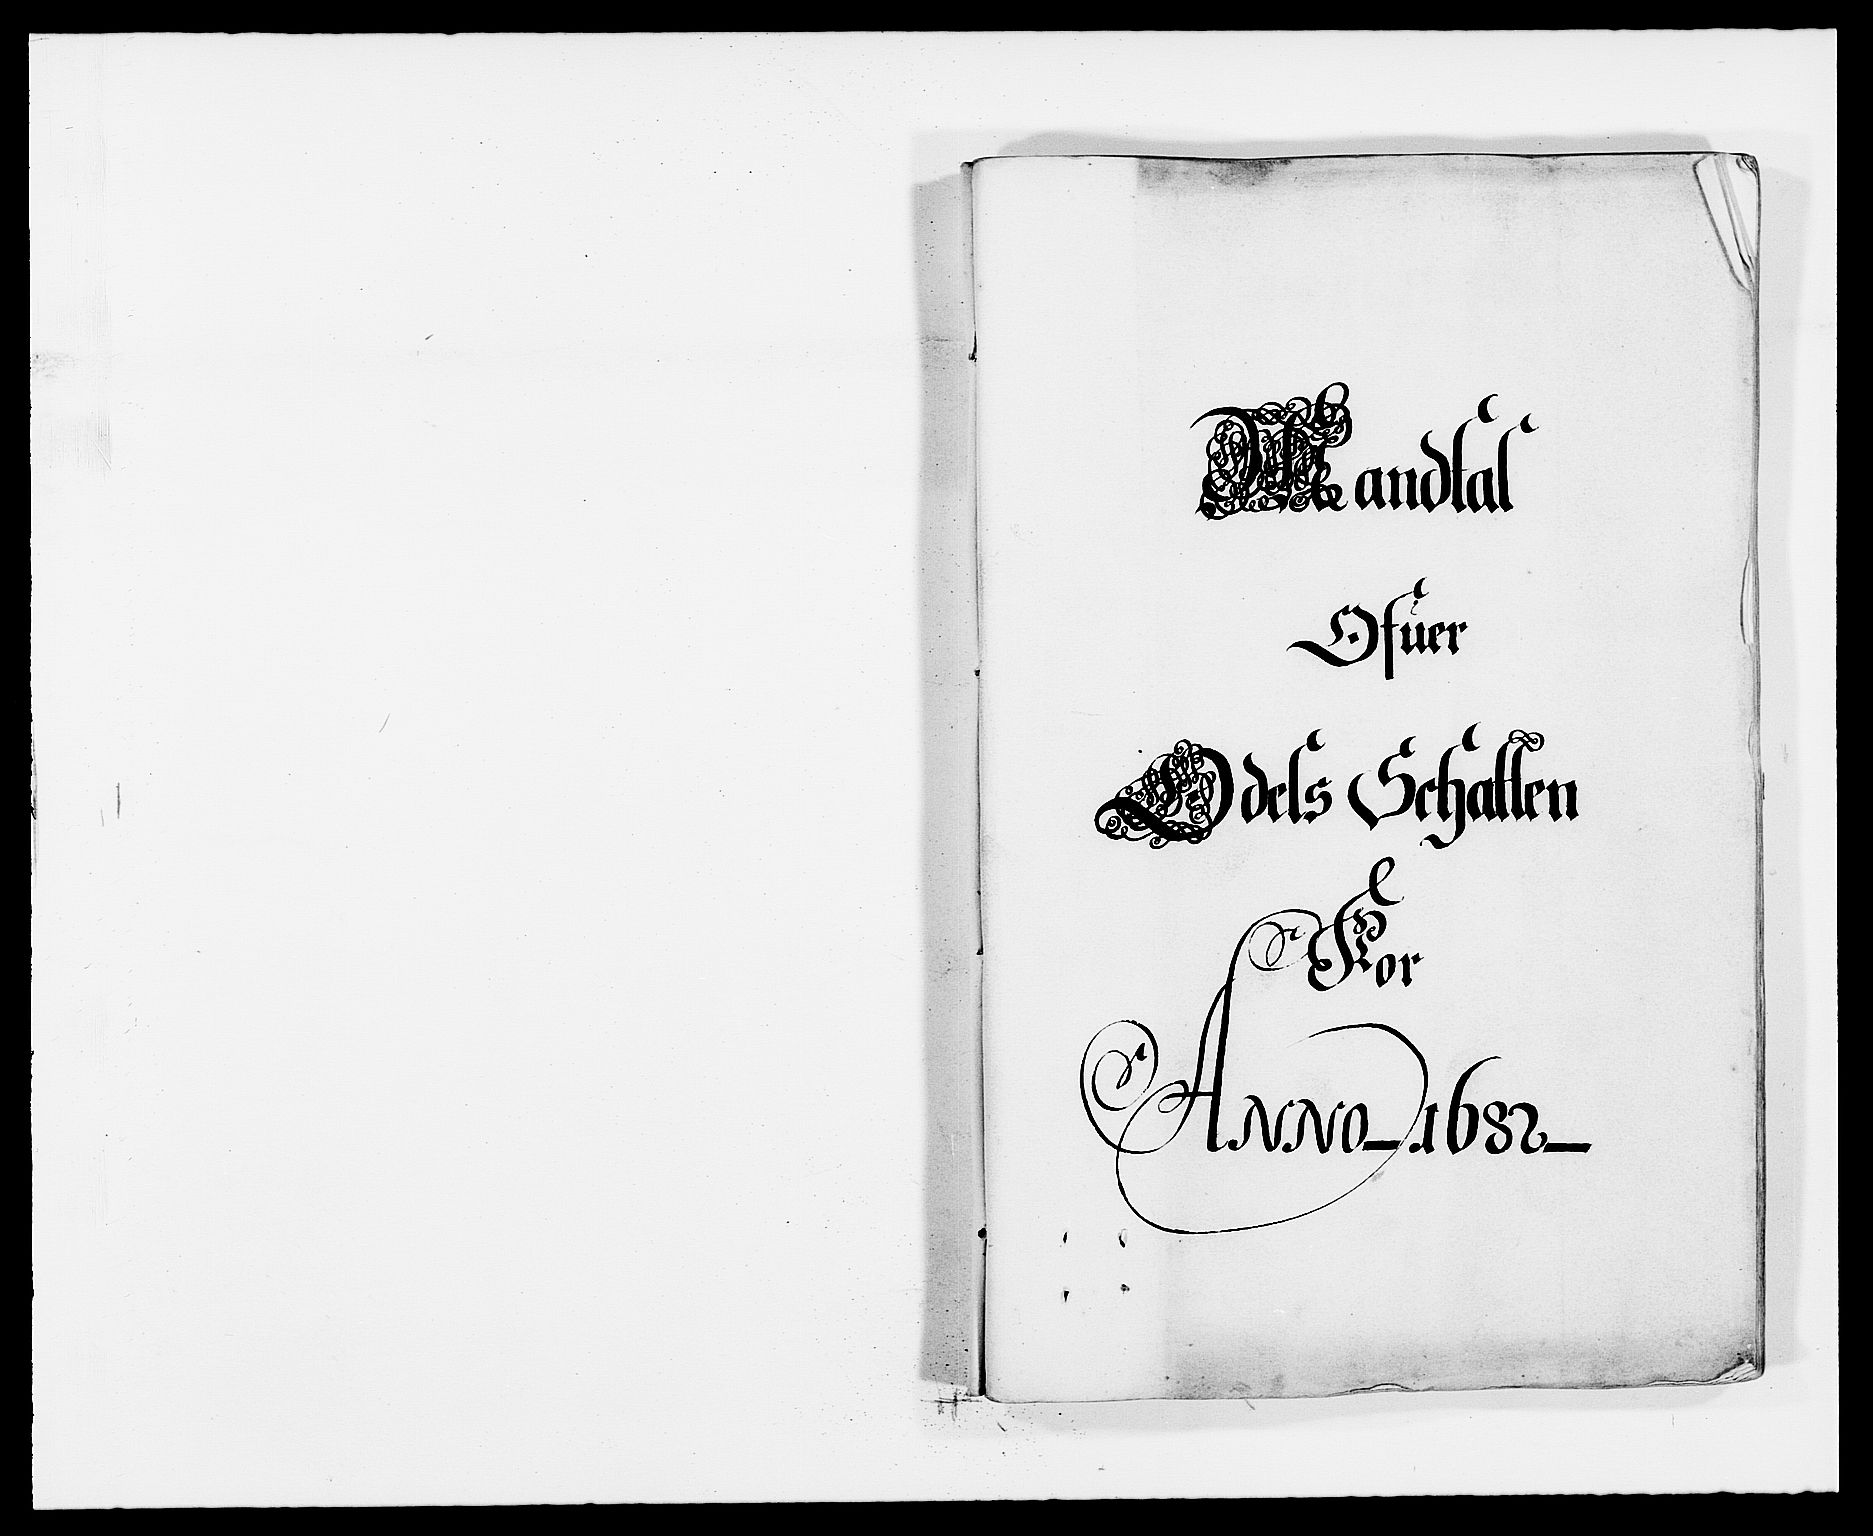 Mandtal
Ofuer
Odels Schatten
For
ANNO 1682